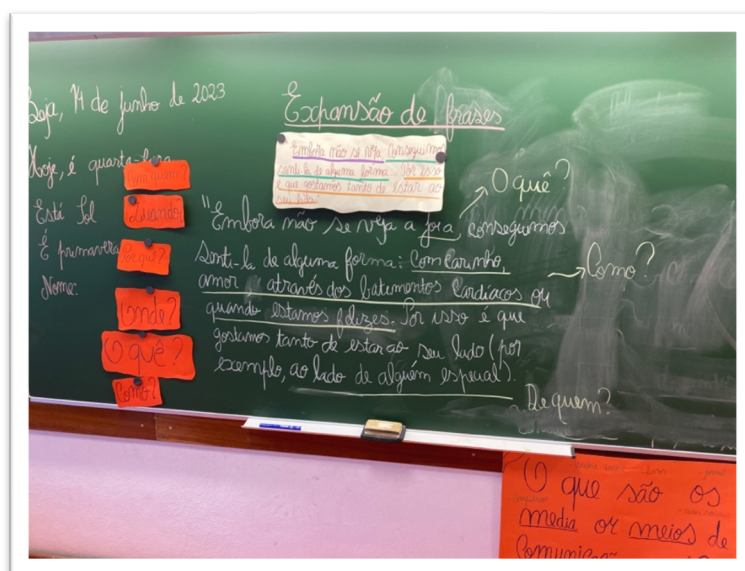 Beja, 14 de junho de 2023
Hoje, é quarta-feira
Está Sol
É primavera
Nome:
Com quem?
Quando?
Porquê?
Onde?
O quê?
Como?
Expansão de frases
Embora não se veja, conseguimos
senti-la de alguma forma. Por isso
é que gostamos tanto de estar ao
seu lado."
"Embora não se veja a joia, conseguimos
senti-la de alguma forma: com carinho,
amor e através dos batimentos cardíacos ou
quando estamos felizes. Por isso é que
gostamos tanto de estar ao seu lado (por
exemplo, ao lado de alguém especial).
O quê?
Como?
De quem?
O que são os
media or meios de
Comunicação